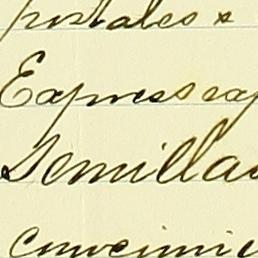 postales &
Express exp
Semillas
conocimie